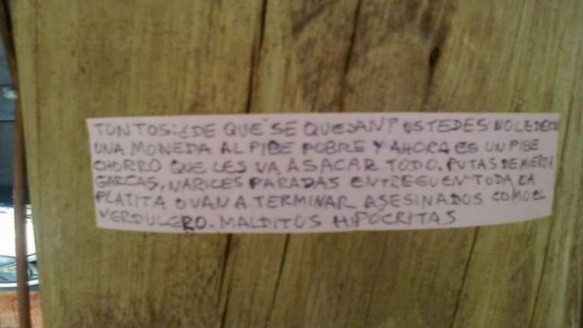 TONTOS: ¿DE QUE SE QUEJAN? USTEDES NO LE DIERON
UNA MONEDA AL PIBE POBRE Y AHORA ES UN PIBE
CHORRO QUE LES VA A SACAR TODO. PUTAS DE MIERDA
GARCAS, NARICES PARADAS ENTREGUEN TODA LA
PLATITA O VAN A TERMINAR ASESINADOS COMO EL
VERDULERO. MALDITOS HIPOCRITAS